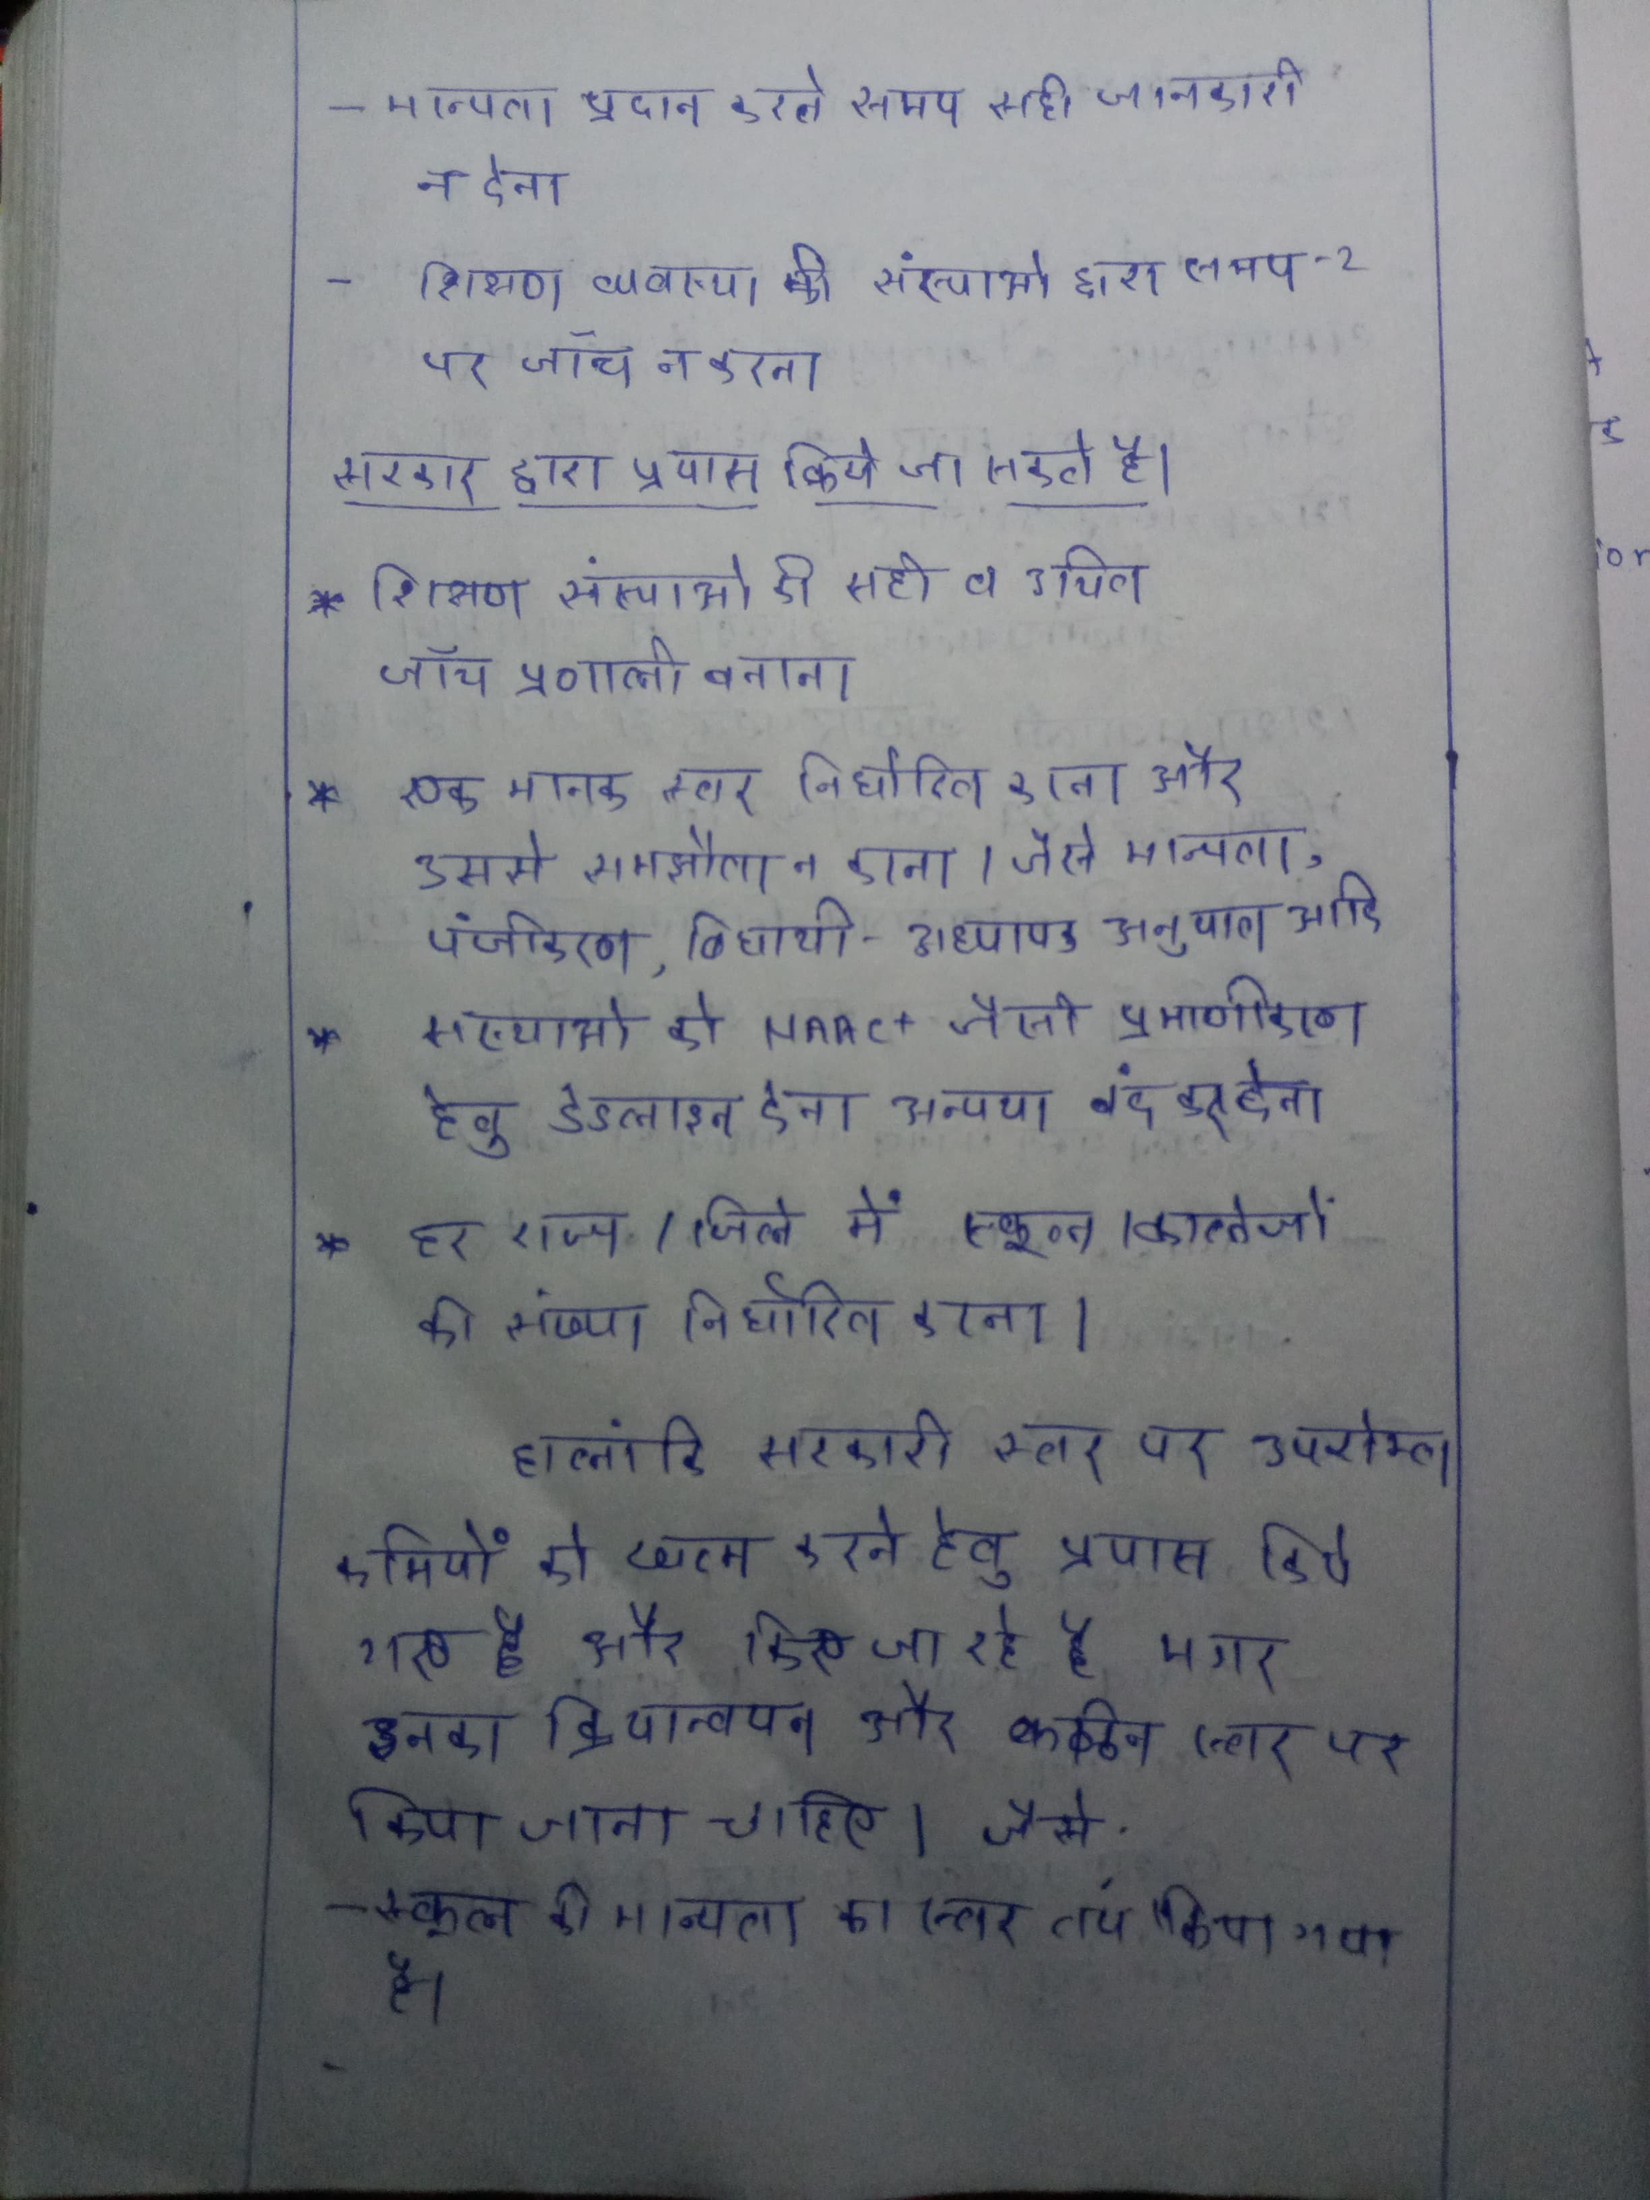 - मान्यता प्रदान करते समय सही जानकारी
न देना
- शिक्षण व्यवस्था की संस्थाओ द्वारा समय-2
पर जाँच न करना
सरकार द्वारा प्रयास किये जा सकते है।
* शिक्षण संस्थाओ की सही व उचित
जाँच प्रणाली बनाना
* एक मानक स्तर निर्धारित करना और
उससे समझौता न करना। जैसे मान्यता,
पंजीकरण, विधार्थी - अध्यापक अनुपात आदि
* संस्थाओ को NAAC+ जैसी प्रमाणीकरण
हेतु डेडलाइन देना अन्यथा बंद कर देना
* हर राज्य / जिले में स्कूल / कालेजों
की संख्या निर्धारित करना।
हालांकि सरकारी स्तर पर उपरोक्त
कमियों को खत्म करने हेतु प्रयास किये
गए है और किए जा रहे है मगर
इनका क्रियान्वयन और कठिन स्तर पर
किया जाना चाहिए। जैसे.
- स्कूल की मान्यता का स्तर तय किया गया
है।
-